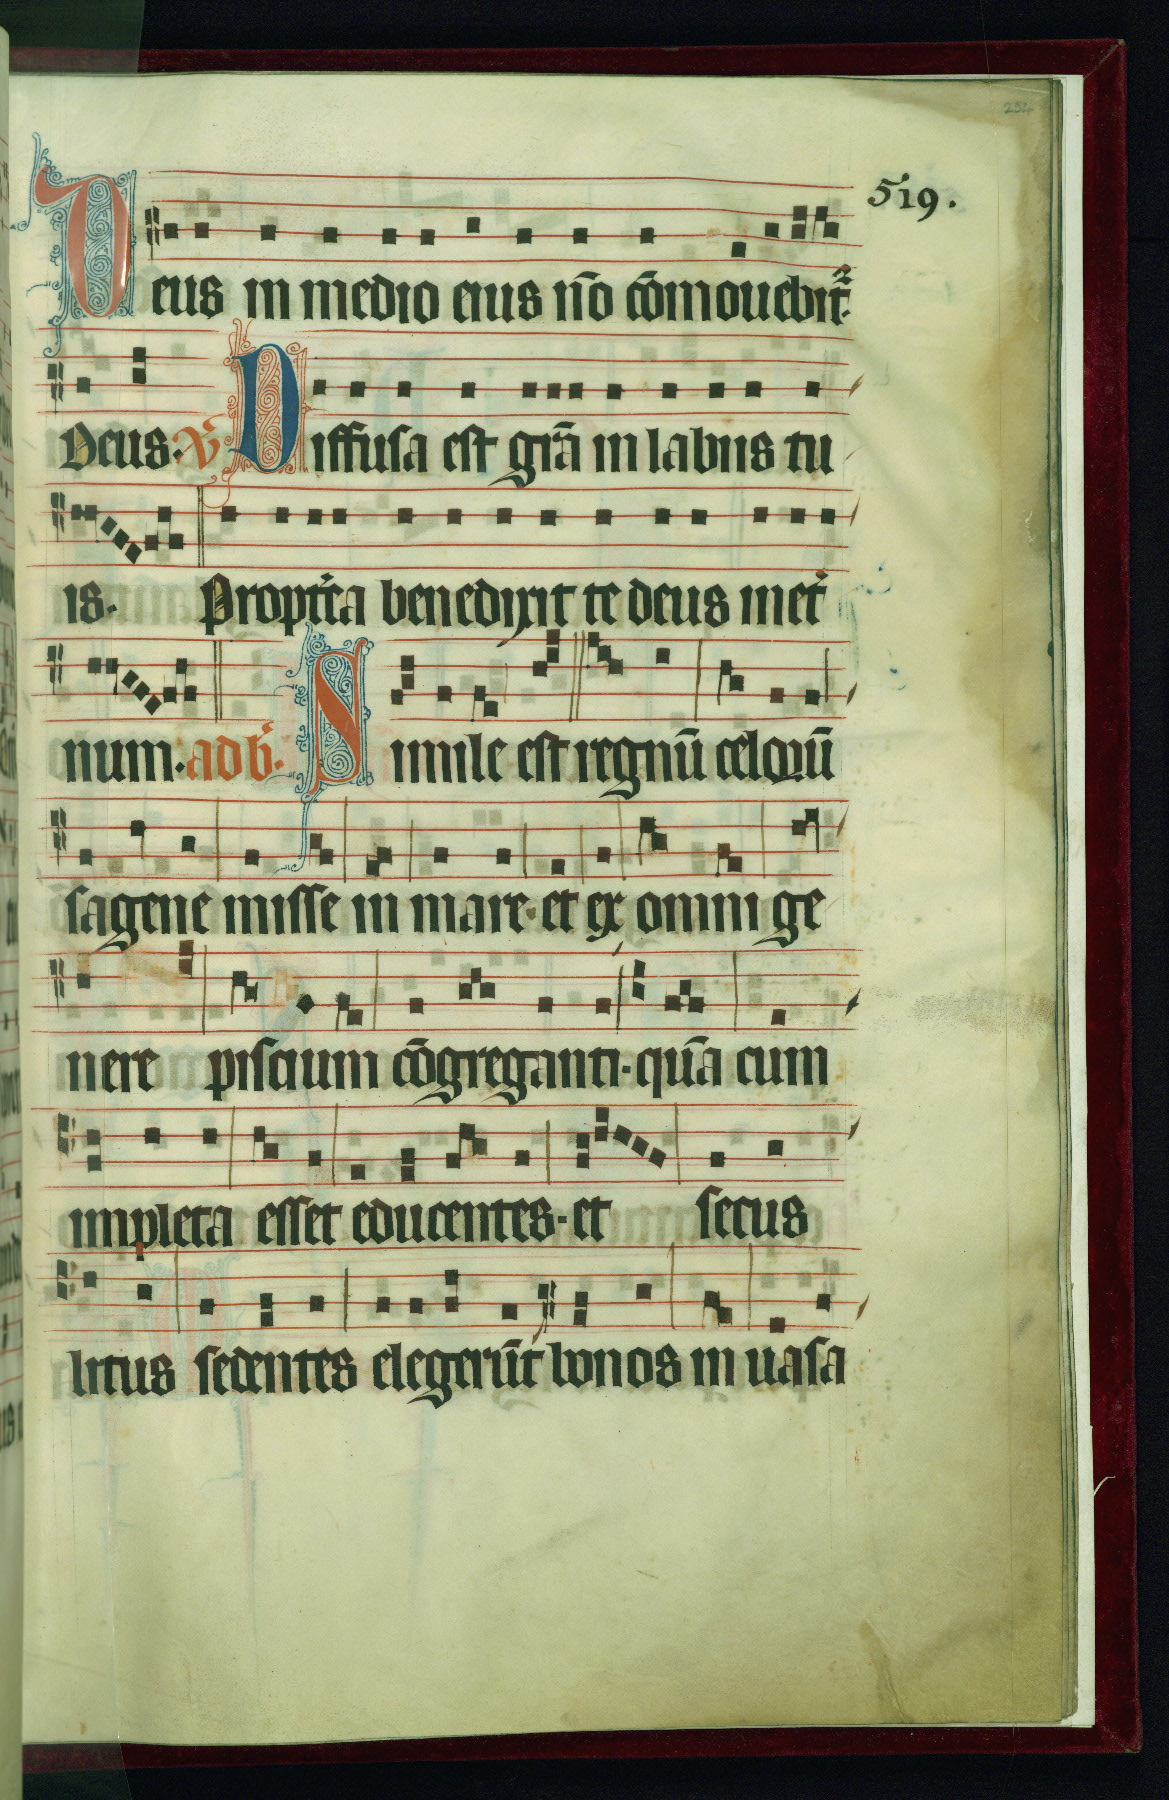 254
519.
Deus in medio eius nō cōmouebit᷑.
Deus. V᷑. Diffusa est grā in labiis tu
is. Propt᷑ea benedixit te deus in et᷑
num. ad b᷑. Simile est regnū celoꝝū
sagene misse in mare. et ex omni ge
nere piscium cōgreganti. quā cum
impleta esset educentes. et secus
litus sedentes elegerūt bonos in uasa